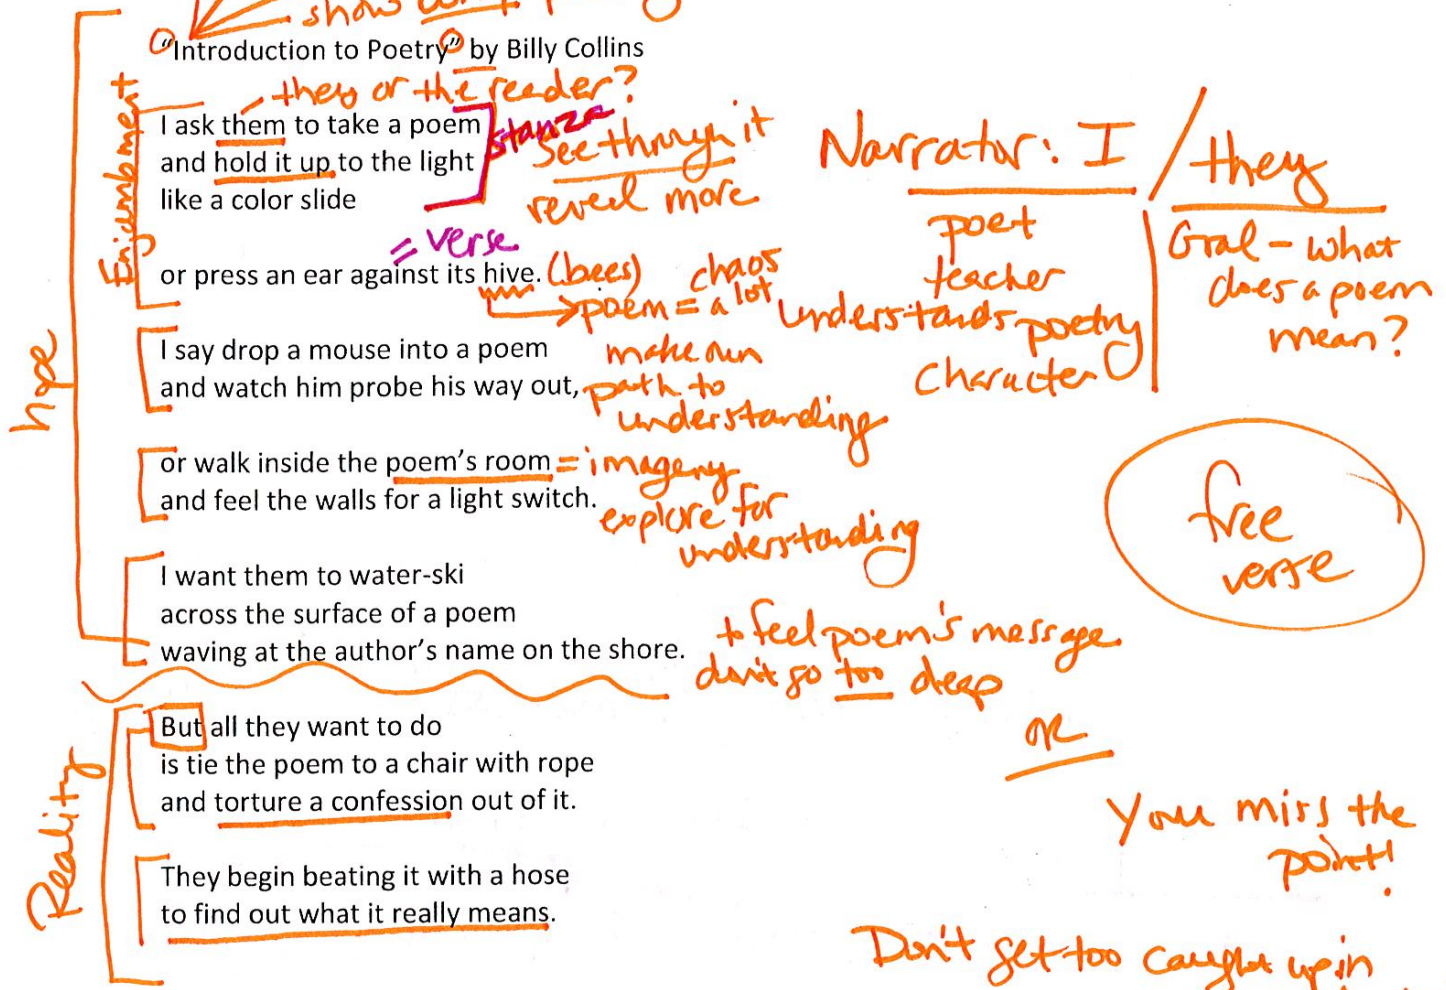 show
"Introduction to Poetry" by Billy Collins
they or the reader?
I ask them to take a poem
and hold it up to the light
like a color slide
stanza
See through it
reveal more
Enjambment
= verse
or press an ear against its hive. (bees)
chaos
poem = a lot
I say drop a mouse into a poem
and watch him probe his way out,
make own
path to
understanding
or walk inside the poem's room = imagery
and feel the walls for a light switch.
explore for
understanding
I want them to water-ski
across the surface of a poem
waving at the author's name on the shore.
to feel poem's message
don't go too deep
hope
But all they want to do
is tie the poem to a chair with rope
and torture a confession out of it.
They begin beating it with a hose
to find out what it really means.
Reality
Narrator: I / they
poet
teacher
understands poetry
character
Goal - what
does a poem
mean?
free
verse
or
You miss the
point!
Don't get too caught up in